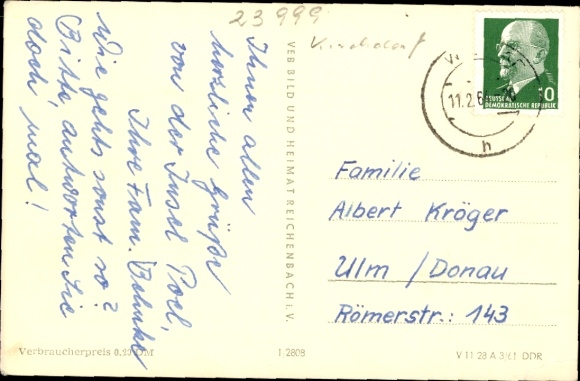 23999
Kirchdorf
Ihnen allen
herzliche Grüße
von der Insel Poel,
Ihre Fam. Behnke
Wie gehts sonst so?
Bitte, antworten Sie
doch mal!
VEB BILD UND HEIMAT REICHENBACH i. V.
11.2.6
h
10
DEUTSCHE
DEMOKRATISCHE REPUBLIK
Familie
Albert Kröger
Ulm / Donau
Römerstr.: 143
Verbraucherpreis 0.20 DM
1/2808
V 11 28 A 3/61 DDR